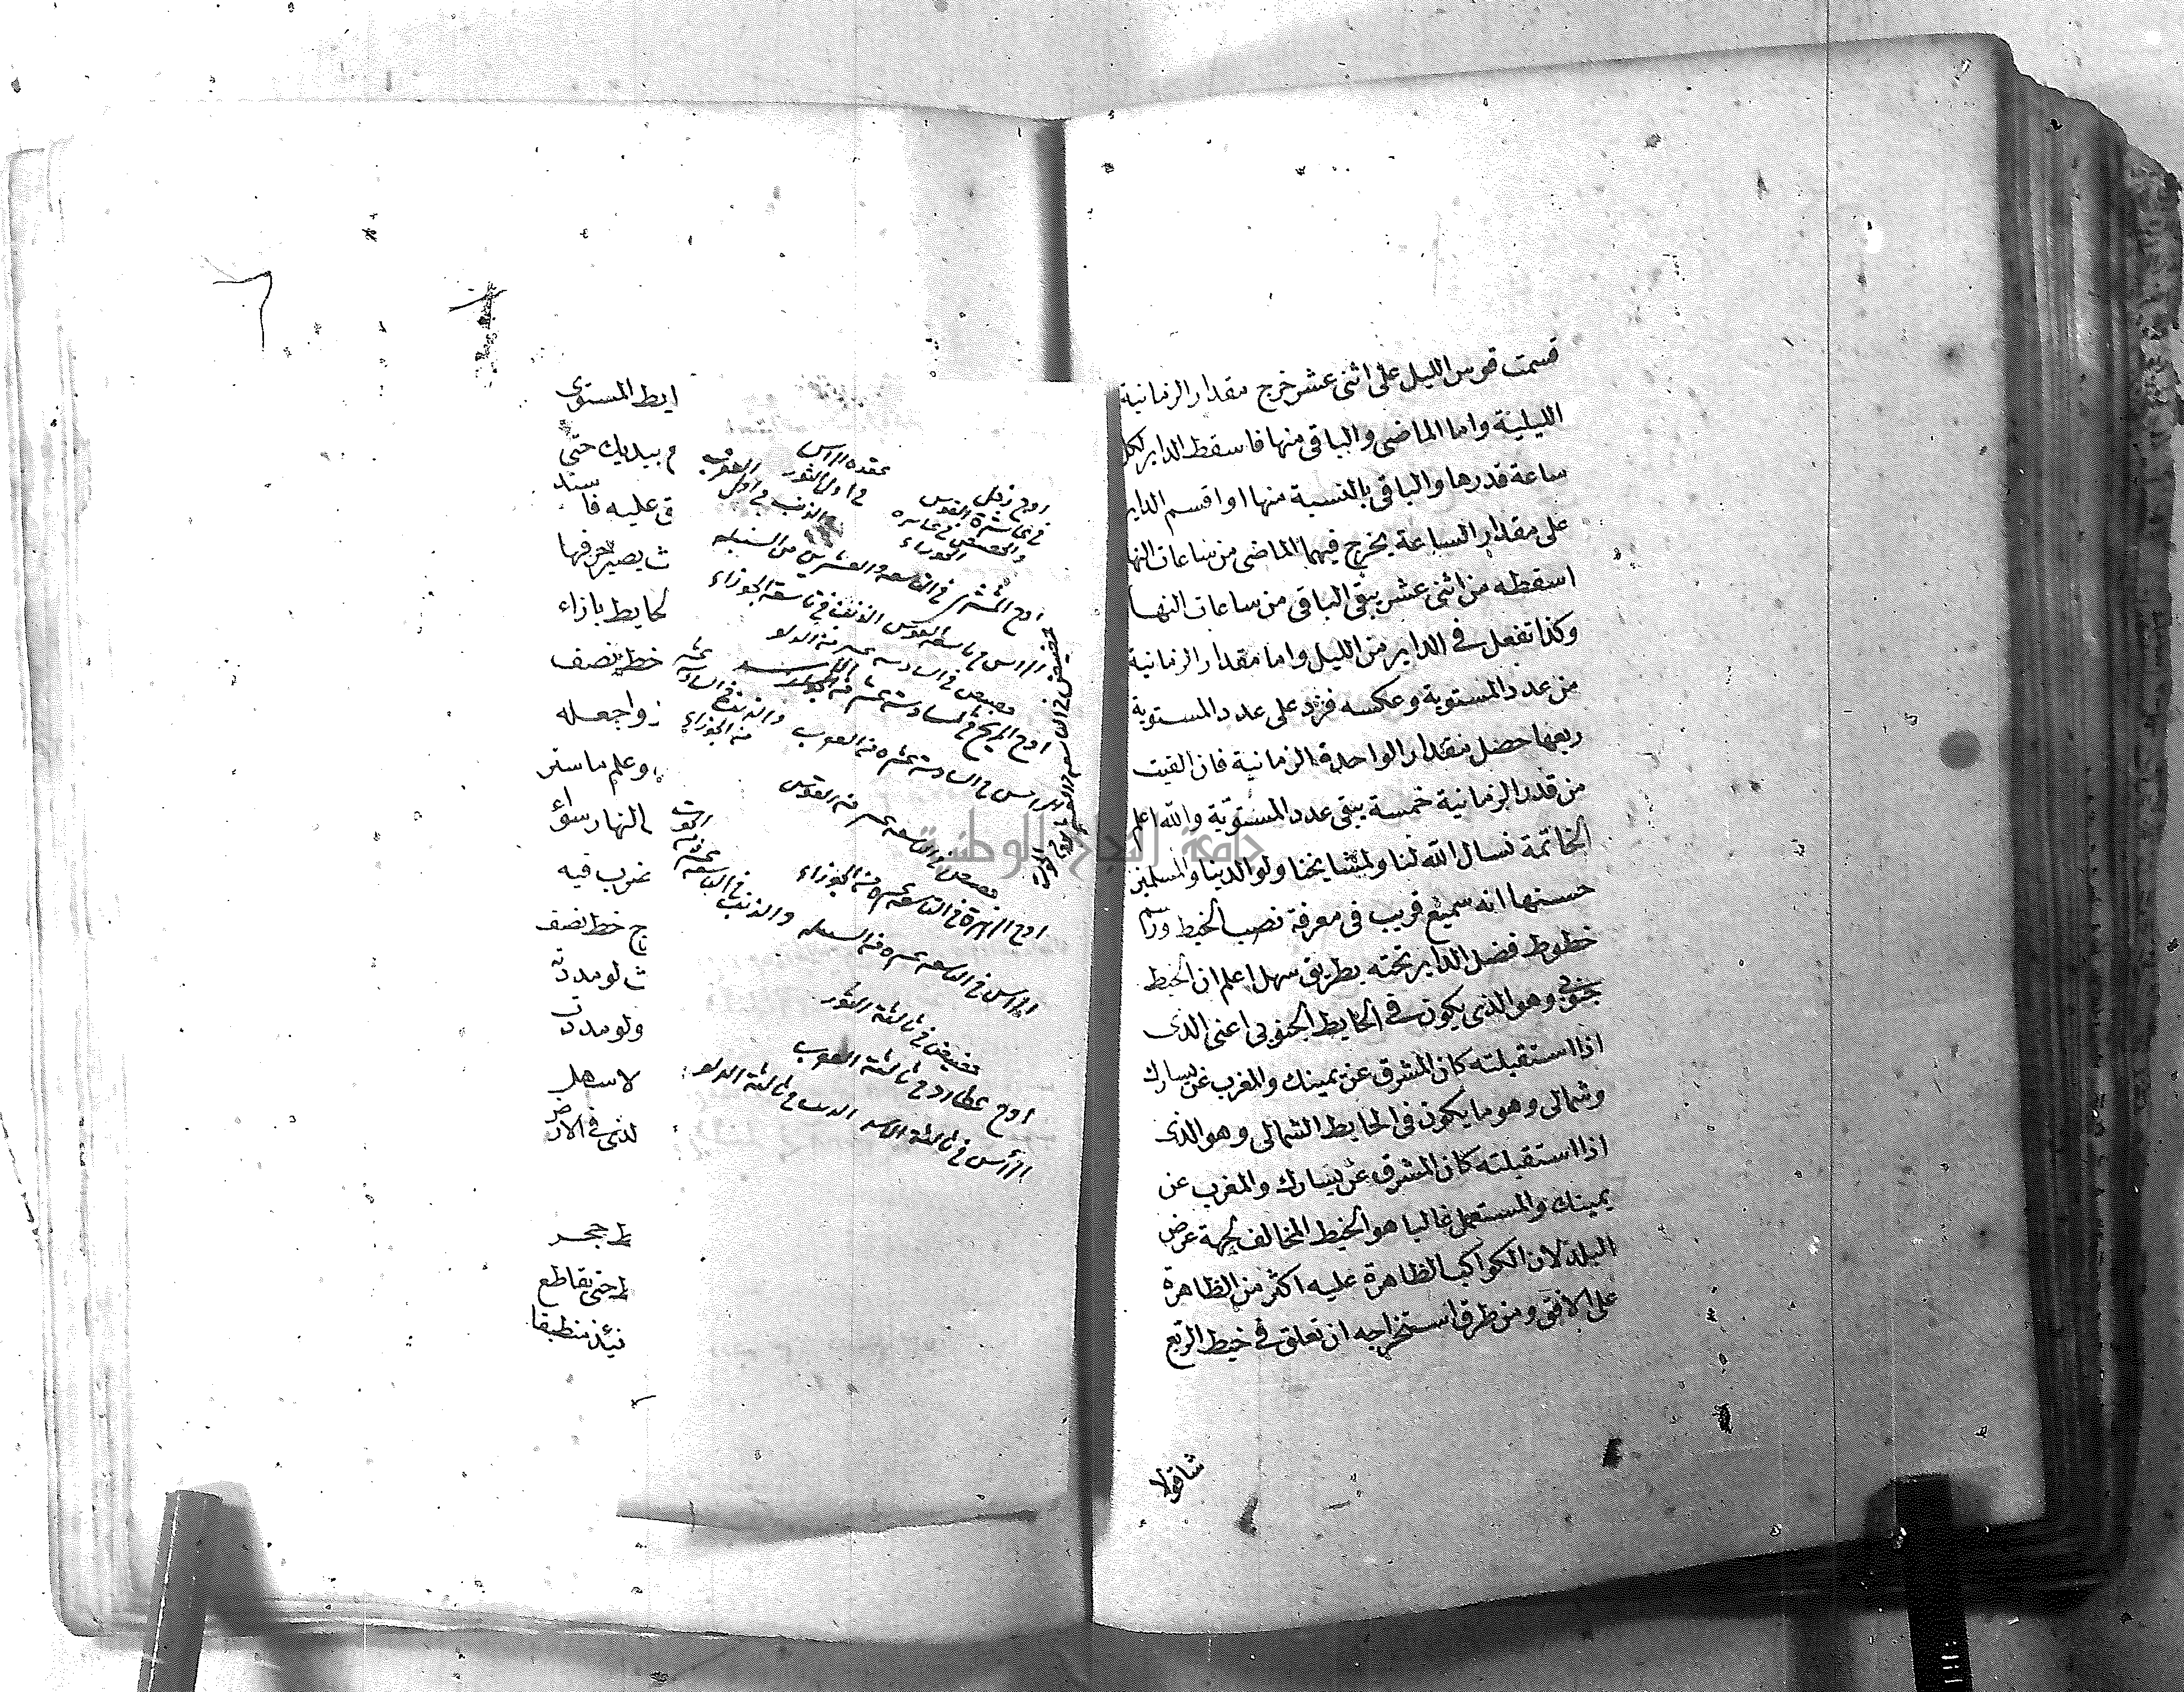 قسمت قوس الليل على اثنى عشر خرج مقدار الزمانية
الليلية واما الماضى والباقى منها فاسقط الداير لكل
ساعة قدرها والباقى بالنسبة منها او اقسم الداير
على مقدار الساعة يخرج فيهما الماضى من ساعات النها
اسقطه من اثنى عشر يبقى الباقى من ساعات النها
وكذا تفعل فى الداير من الليل واما مقدار الزمانية
من عدد المستوية وعكسه فزد على عدد المستوية
ربعها حصل مقدار الواحدة الزمانية فان القيت
من قدر الزمانية خمسة يبقى عدد المستوية والله اعلم
الخاتمة نسال الله لنا ولمشايخنا ولوالدينا والمسلمين
حسنها انه سميع قريب فى معرفة نصب الخيط ورسم
خطوط فضل الداير تحته بطريق سهل اعلم ان الخيط
جنوبى وهو الذى يكون فى الحايط الجنوبى اعنى الذى
اذا استقبلته كان المشرق عن يمينك والمغرب عن يسارك
وشمالى وهو ما يكون فى الحايط الشمالى وهو الذى
اذا استقبلته كان المشرق عن يسارك والمغرب عن
يمينك والمستعمل غالبا هو الخيط المخالف لجهة عرض
البلد لان الكواكب الظاهرة عليه اكثر من الظاهرة
على الافق ومن طرق استخراجه ان تعلق فى خيط الربع
شاقولا
عقده الراس
فى اول الثور
والذنب فى اول العقرب
اوج زحل
فى عاشرة القوس
والحضيض فى عاشره
الجوزاء
اوج المشترى فى التاسعه والعشرين من السنبله
الراس فى تاسعة القوس الذنب فى تاسعة الجوزاء
حضيض فى السادسه عشر من الدلو
اوج المريخ فى السادسة عشر من
الراس فى السادسة عشره من العقرب والذنب فى السادسة عشر
من الجوزاء
حضيض فى التاسعه عشر من القوس
اوج الزهرة فى التاسعه عشره من الجوزاء
الراس فى التاسعه عشره من السنبله والذنب فى التاسعه عشر من
الحوت
حضيض فى ثالثة الثور
اوج عطارد فى ثالثة العقرب
الراس فى ثالثة الاسد الذنب فى ثالثة الدلو
ايط المستوى
م بيديك حتى
سند
قى عليه فا
ث يصير حرفها
لحايط بازاء
خط نصف
ز واجعله
وعلم ما ستر
النهار سواء
غرب فيه
ج خط نصف
ث لو مددته
ولو مددت
لاسهل
لذى فى الارض
ط حجر
ط حتى يقاطع
نيئذ منطبقا
جامعة النجاح الوطنية